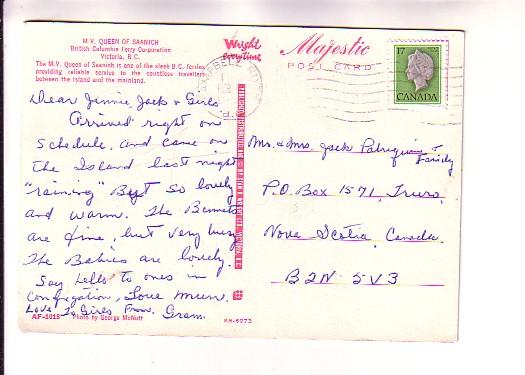 M.V. QUEEN OF SAANICH
British Columbia Ferry Corporation
Victoria, B.C.
The M.V. Queen of Saanich is one of the sleek B.C. ferries
providing reliable service to the countless travellers
between the island and the mainland.
Wright
everytime
Majestic
POST CARD
17
CANADA
CAMPBELL RIVER
Dear Jennie, Jack & Girls
Arrived right on
schedule. and came on
the Island last night
"raining" But so lovely
and warm. The Bennets
are fine, but very busy
The Babies are lovely.
Say hello to ones in
Congregation, Love Mum.
Love To Girls From, Gram.
Mr. & Mrs. Jack Palriquin &
Family
P.O. Box 1571, Truro,
Nova Scotia, Canada.
B2N 5V3
AF-1018 Photo by George McNutt
KS-6973